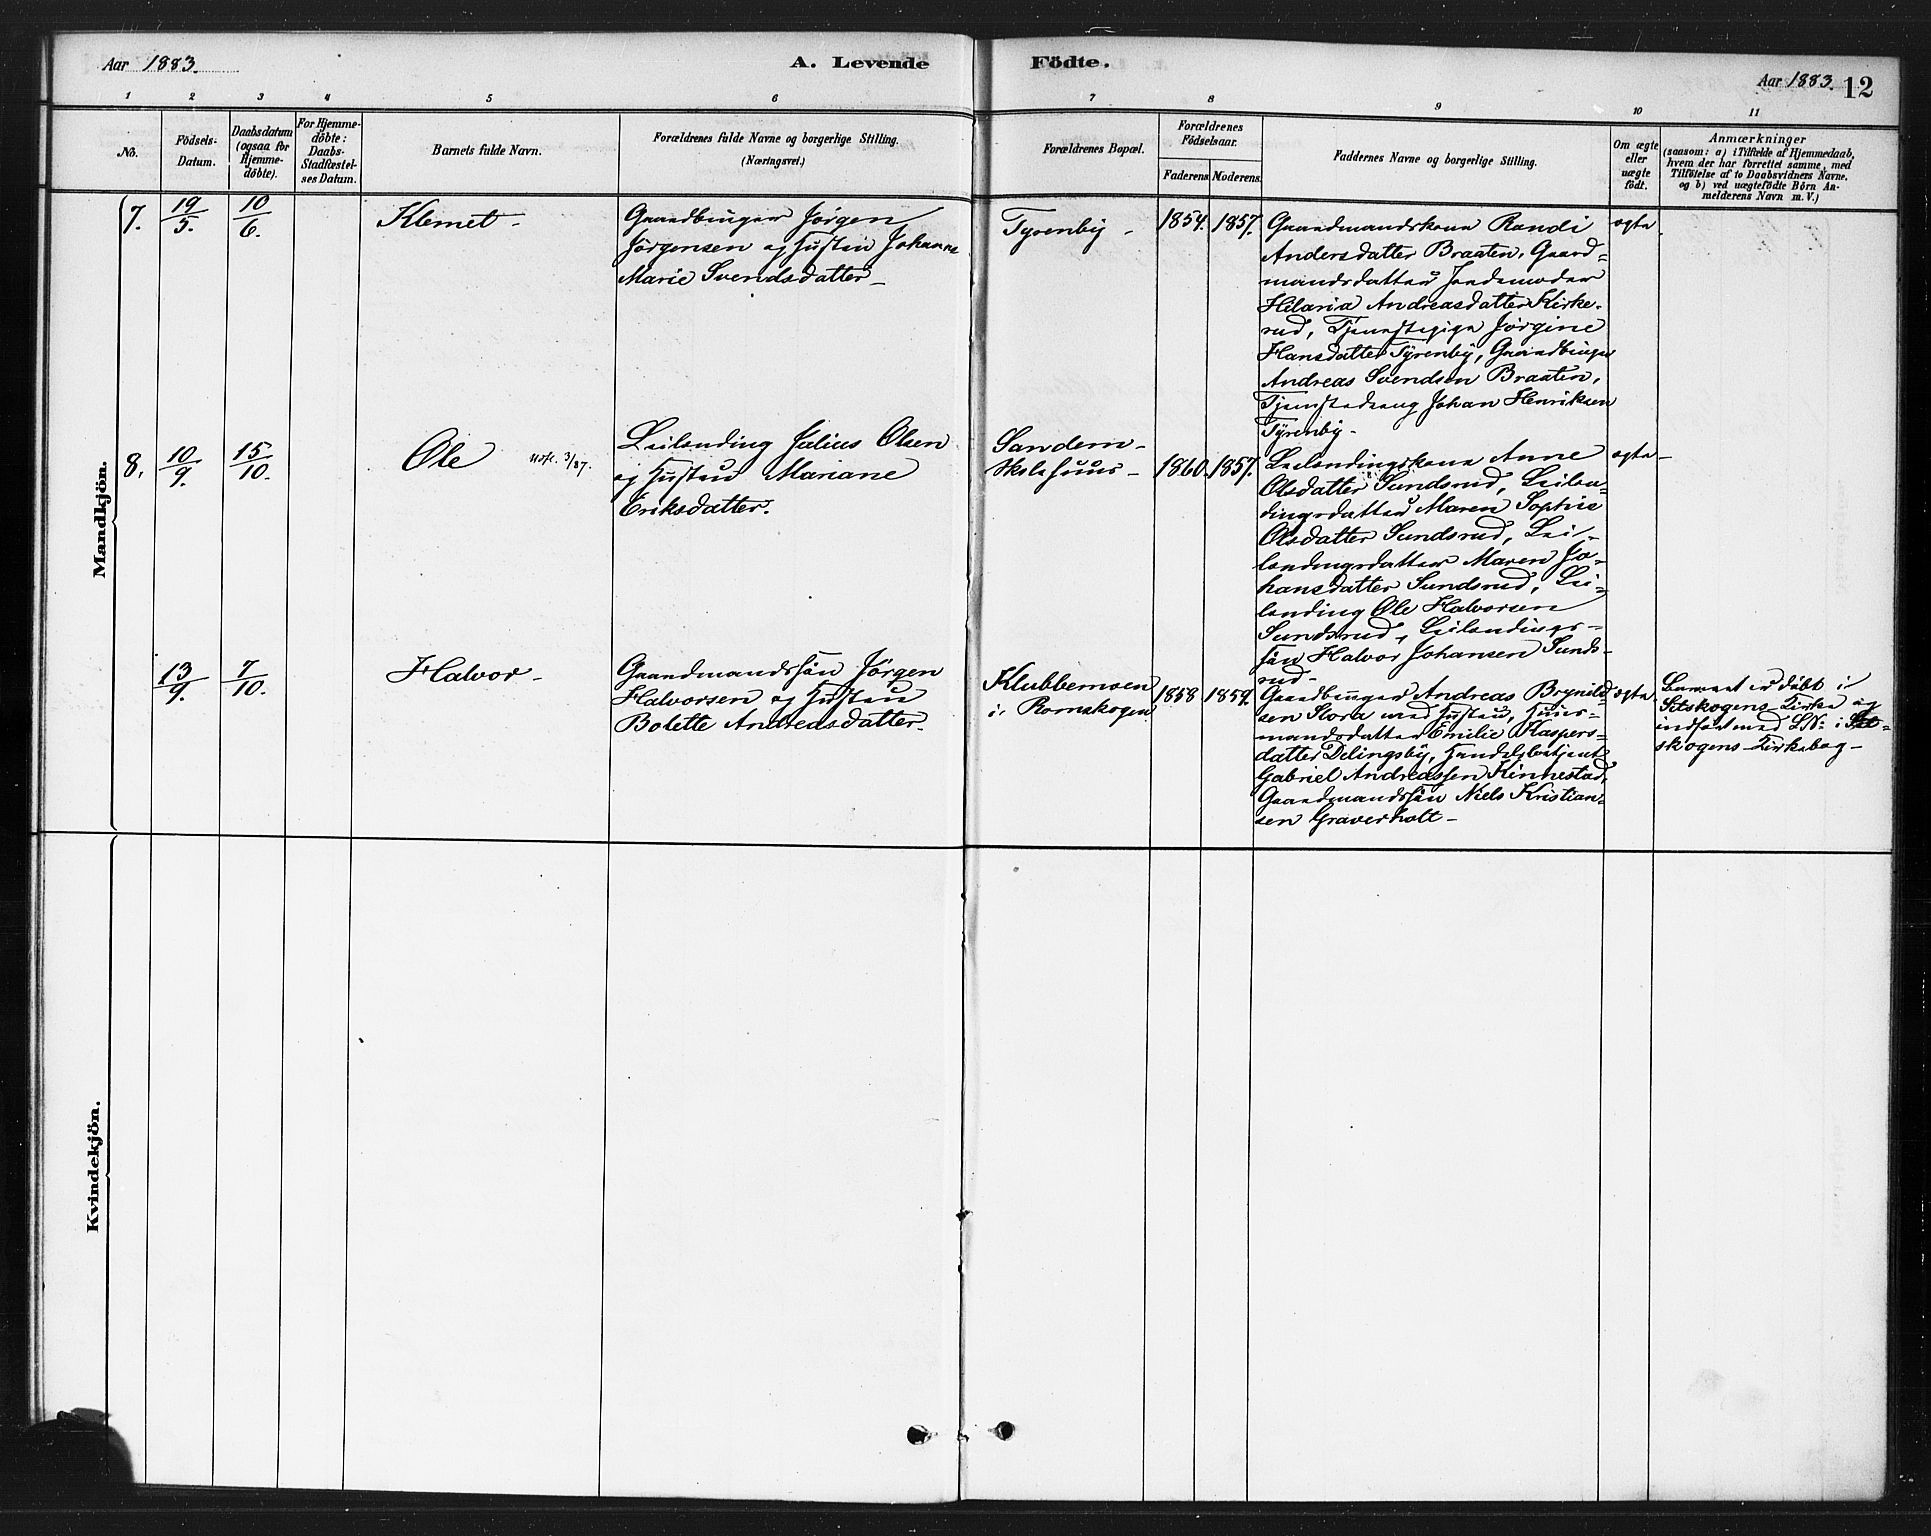 Aar 1883.
A. Levende Födte.
Aar 1883. 12
1 2 3 4 5 6 7 8 9 10 11
No.
Födsels-
Datum.
Daabsdatum
(ogsaa for
Hjemme-
döbte).
For Hjemme-
döbte:
Daabs-
Stadfæstel-
ses Datum.
Barnets fulde Navn.
Forældrenes fulde Navne og borgerlige Stilling.
(Næringsvei.)
Forældrenes Bopæl.
Forældrenes
Födselsaar.
Faderens Moderens.
Faddernes Navne og borgerlige Stilling.
Om ægte
eller
uægte
født.
Anmærkninger
(saasom: a) i Tilfælde af Hjemmedaab,
hvem der har forrettet samme, med
Tilföielse af to Daabsvidners Navne.
og b) ved uægtefödte Börn An-
melderens Navn m. V.)
Mandkjön.
7.
19/5.
10/6.
Klemet -
Gaardbruger Jørgen
Jørgensen og Hustru Johanne
Marie Svendsdatter -
Tyrenby -
1854. 1857.
Gaardmandskone Randi
Andersdatter Braaten, Gaard-
mandsdatter Jordemoder
Hilaria Andreasdatter Kirke-
rud, Tjenestepige Jørgine
Hansdatter Tyrenby, Gaardbruger
Andreas Svendsen Braaten,
Tjenestedreng Johan Henriksen
Tyrenby -
ægte
8.
10/9.
15/10.
Ole
3/87.
Leilending Julius Olsen
og Hustru Mariane
Eriksdatter.
Sandem-
Skolehuus -
1860. 1857.
Leilendingskone Anne
Olsdatter Sundsrud, Leilen-
dingsdatter Maren Sophie
Olsdatter Sundsrud, Lei-
lendingsdatter Maren Jo-
hansdatter Sundsrud, Lei-
lending Ole Halvorsen
Sundsrud, Leilendings-
søn Halvor Johansen Sunds-
rud -
ægte -
13/9.
7/10.
Halvor -
Gaardmandssøn Jørgen
Halvorsen og Hustru
Bolette Andreasdatter.
Klubbemoen
i Romskogen
1858 1859.
Gaardbruger Andreas Brynild-
sen Slora med Hustru, Huus-
mandsdatter Emilie Kaspers-
datter Delingsby, Handelsbetjent
Gabriel Andreassen Kinnestad,
Gaardmandssøn Niels Kristian-
sen Graverholt -
ægte
Barnet er døbt i
Setskogens Kirke og
indført med LN: i Set-
skogens Kirkebog -
Kvindekjön.